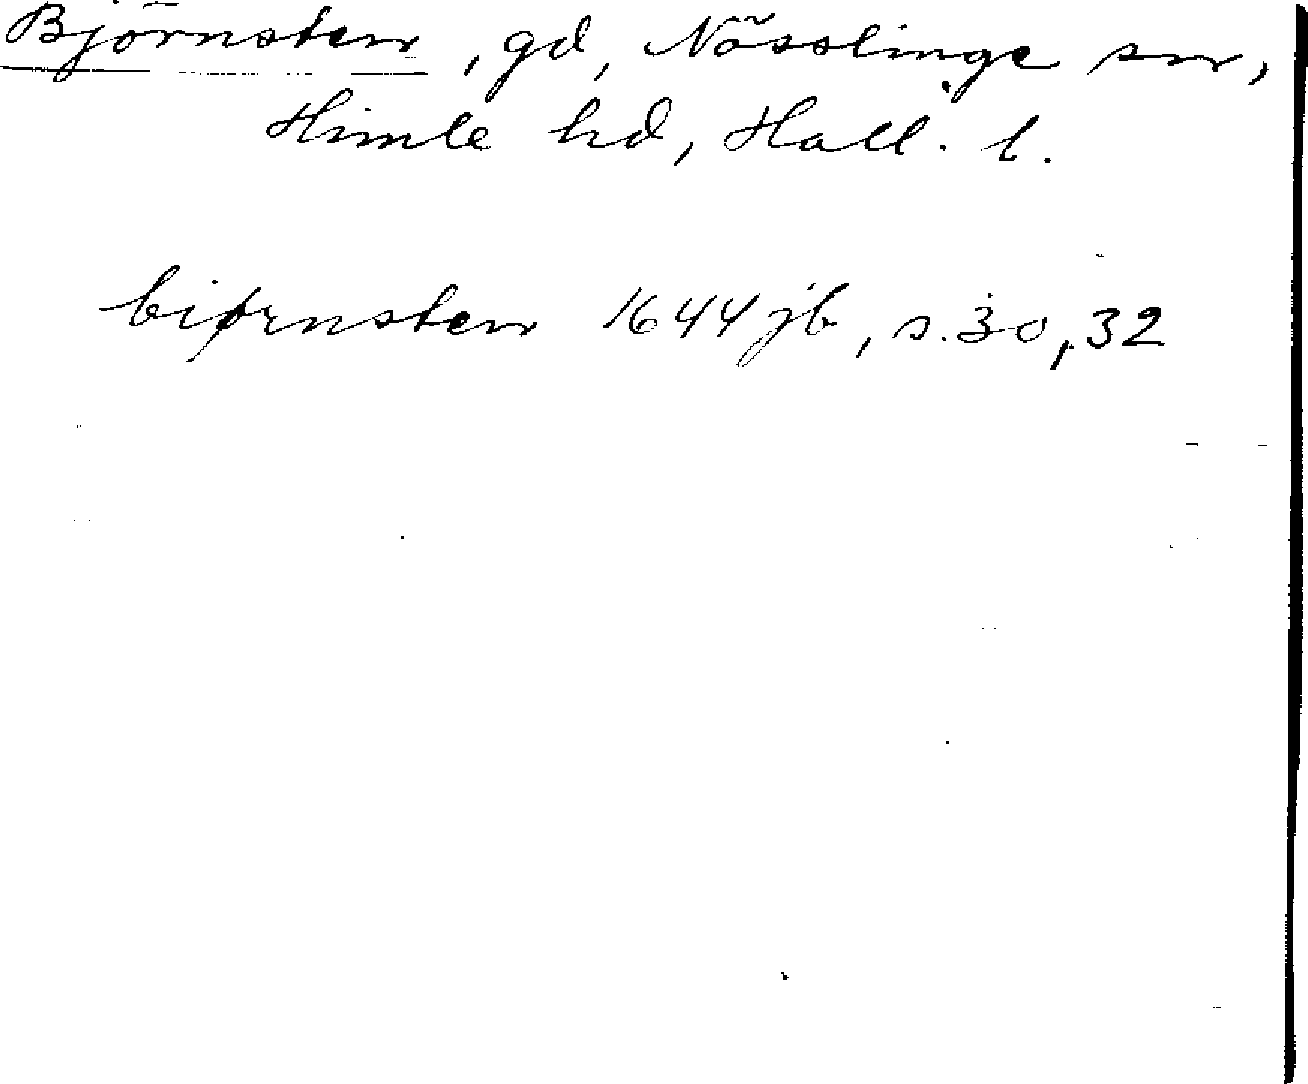 Björnsten, gd, Nösslinge sn,
Himle hd, Hall. l.
biørnsten 1644 jb, s. 30, 32